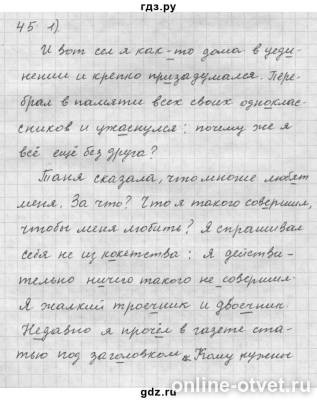 гдз.ру
45 1).
И вот сел я как-то дома в уеди-
нении и крепко призадумался. Пере-
брал в памяти всех своих однокла-
ссников и ужаснулся: почему же я
всё ещё без друга?
Таня сказала, что многие любят
меня. За что? Что я такого совершил,
чтобы меня любить? Я спрашивал
себя не из кокетства: я действи-
тельно ничего такого не совершил.
Я жалкий троечник и двоечник.
Недавно я прочёл в газете ста-
тью под заголовком „Кому нужны
gdz.ru
online-otvet.ru